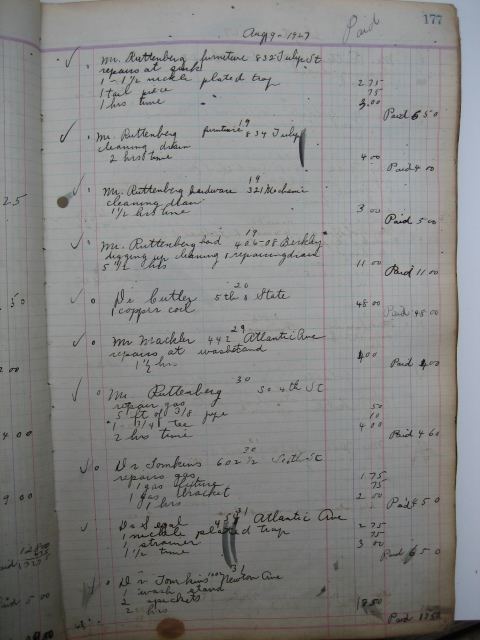 177
Aug 9 - 1927 Paid
Mr. Ruttenberg furneture 832 July St
repairs at sink
1 - 1 1/2 nickle plated trap 2 75
1 tail piece 75
1 hrs time 3.00
Paid 6 50
19
Mr. Ruttenberg furniture 834 July
cleaning drain
2 hrs time 4 00
Paid 4 00
19
Mr. Ruttenberg hardware 321 Mechanic
cleaning drain
1 1/2 hrs time 3 00
Paid 3 00
19
Mr. Ruttenberg 406-08 Berkley
digging up cleaning & repairing drain
5 1/2 hrs 11 00
Paid 11 00
20
Dr Cutler 5th & State
1 copper coil 48 00
Paid 48 00
29
Mr Mackler 442 Atlantic Ave
repairs at washstand
1 1/2 hrs 4 00
Paid 4 00
30
Mr Ruttenberg 4th St
repair gas
5 ft of 3/8 pipe 50
1 - 3/4 tee 10
2 hrs time 4 00
Paid 4 60
30
Dr Tomkins 602 1/2 St
repairs gas
1 gas fixture 1 75
1 gas bracket 75
1 hrs 2 00
Paid 4 50
31
Dr Segal Atlantic Ave
1 nickle plated trap 2 75
1 strainer 75
1 1/2 time 3 00
Paid 6 50
31
Dr Tomkins Newton Ave
1 wash stand
2 spickets
2 hrs 18 50
Paid